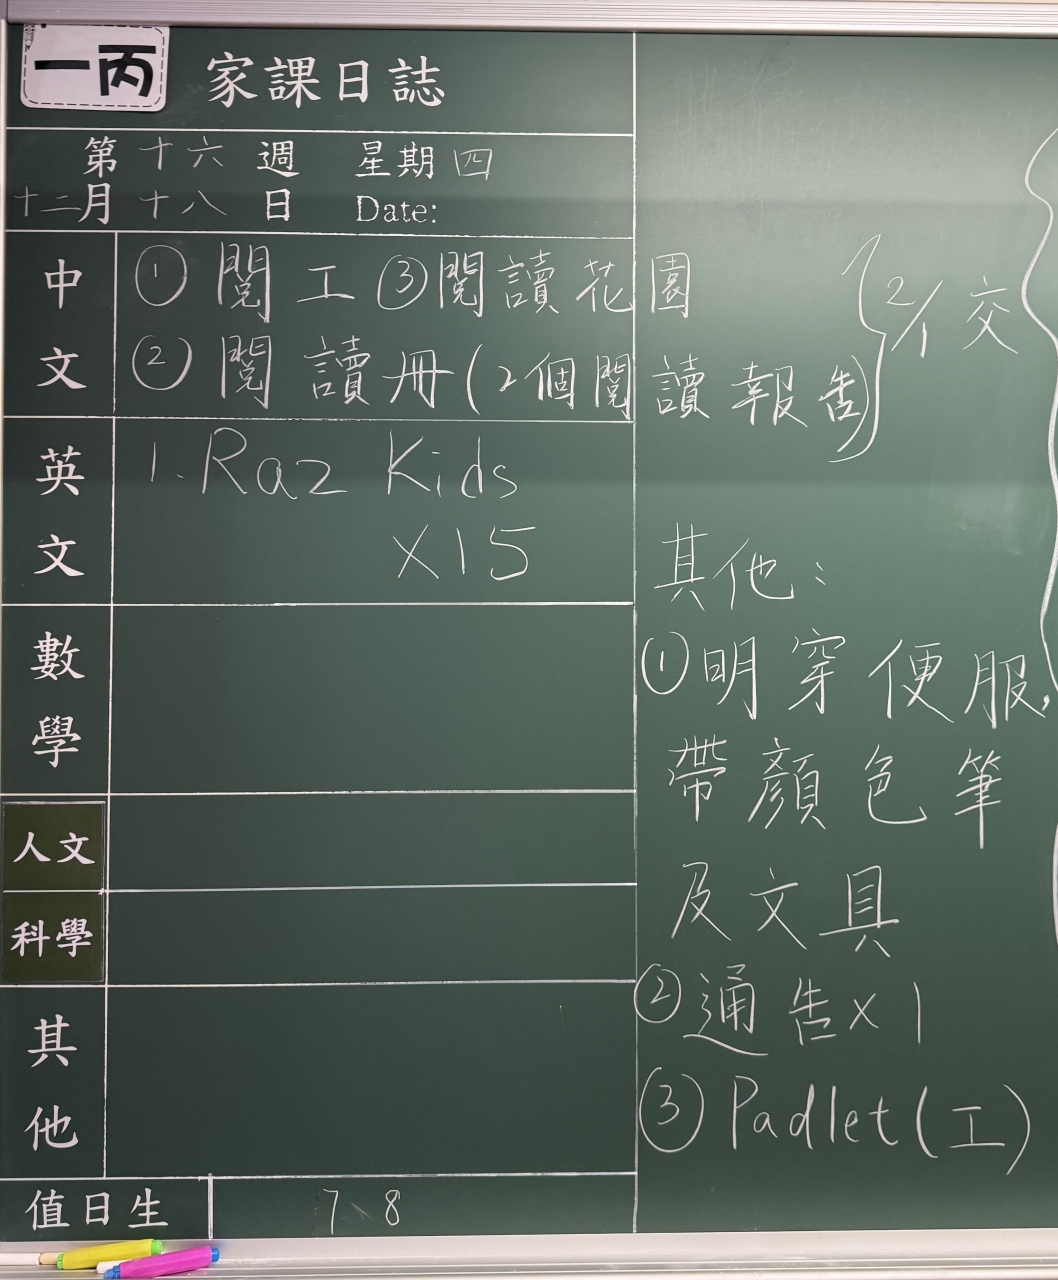 一丙 家課日誌
第十六週 星期四
十二月十八日 Date:
中文
① 閱工 ③ 閱讀花園
② 閱讀冊(2個閱讀報告)
2/1 交
英文
1. Raz Kids
X15
數學
人文
科學
其他
其他：
①明穿便服，
帶顏色筆
及文具
②通告x1
③Padlet(工)
值日生 7、8